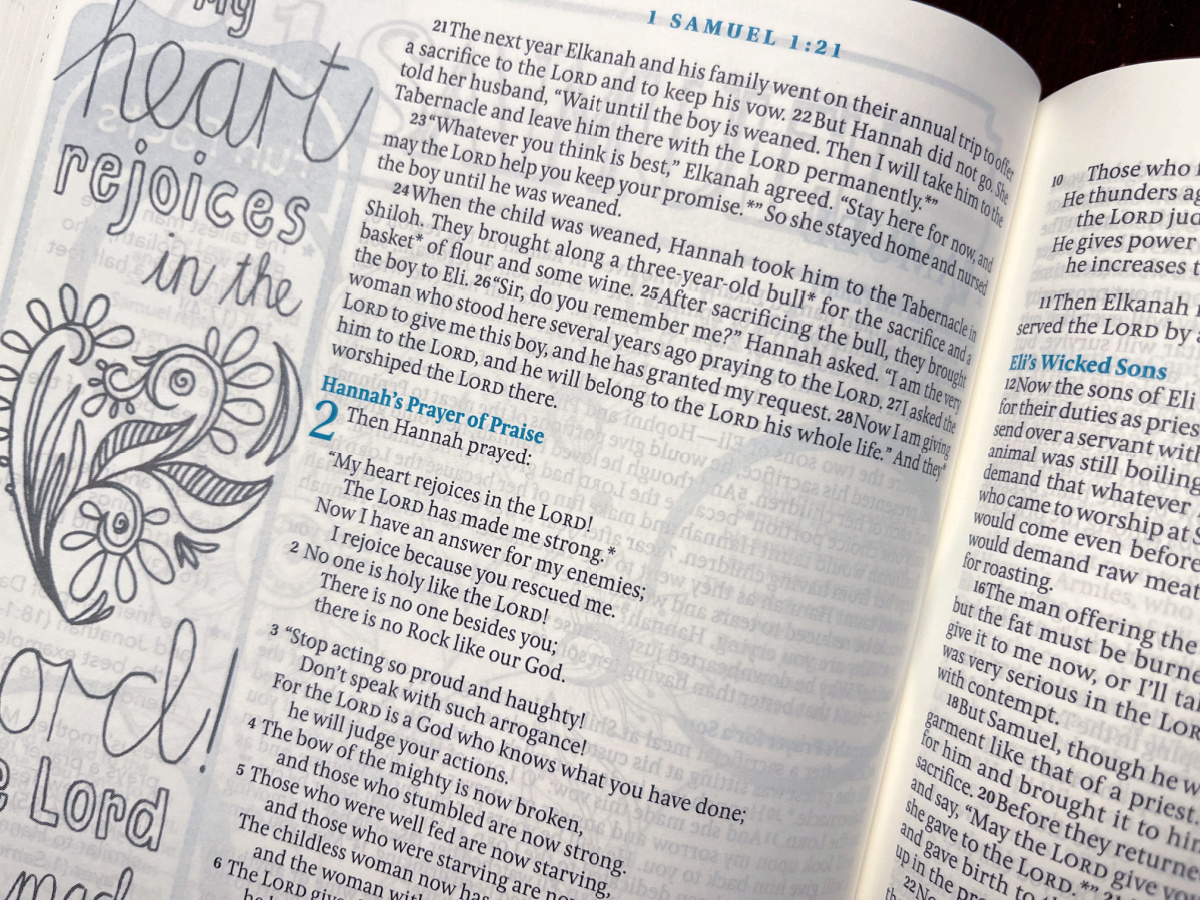 My
heart
rejoices
in the
ord!
Lord
mad
1 SAMUEL 1:21
21The next year Elkanah and his family went on their annual trip to offer
a sacrifice to the LORD and to keep his vow. 22But Hannah did not go. She
told her husband, “Wait until the boy is weaned. Then I will take him to the
Tabernacle and leave him there with the LORD permanently.*”
23“Whatever you think is best,” Elkanah agreed. “Stay here for now, and
may the LORD help you keep your promise.*” So she stayed home and nursed
the boy until he was weaned.
24When the child was weaned, Hannah took him to the Tabernacle in
Shiloh. They brought along a three-year-old bull* for the sacrifice and a
basket* of flour and some wine. 25After sacrificing the bull, they brought
the boy to Eli. 26“Sir, do you remember me?” Hannah asked. “I am the very
woman who stood here several years ago praying to the LORD. 27I asked the
LORD to give me this boy, and he has granted my request. 28Now I am giving
him to the LORD, and he will belong to the LORD his whole life.” And they*
worshiped the LORD there.
Hannah’s Prayer of Praise
2 Then Hannah prayed:
“My heart rejoices in the LORD!
The LORD has made me strong.*
Now I have an answer for my enemies;
I rejoice because you rescued me.
2 No one is holy like the LORD!
There is no one besides you;
there is no Rock like our God.
3 “Stop acting so proud and haughty!
Don’t speak with such arrogance!
For the LORD is a God who knows what you have done;
he will judge your actions.
4 The bow of the mighty is now broken,
and those who stumbled are now strong.
5 Those who were well fed are now starving,
and those who were starving are now
The childless woman now has
and the woman with
6 The LORD give
10 Those who
He thunders ag
the LORD jud
He gives power
he increases t
11Then Elkanah
served the LORD by
Eli’s Wicked Sons
12Now the sons of Eli
for their duties as pries
send over a servant with
animal was still boiling
demand that whatever
who came to worship at S
would come even before
would demand raw meat
for roasting.
16The man offering the
but the fat must be burne
give it to me now, or I’ll tak
was very serious in the LOR
with contempt.
18But Samuel, though he w
garment like that of a priest.
for him and brought it to him
sacrifice. 20Before they returne
and say, “May the LORD give yo
she gave to the LORD.*” 21
and gave birth to th
up in the pre
22No